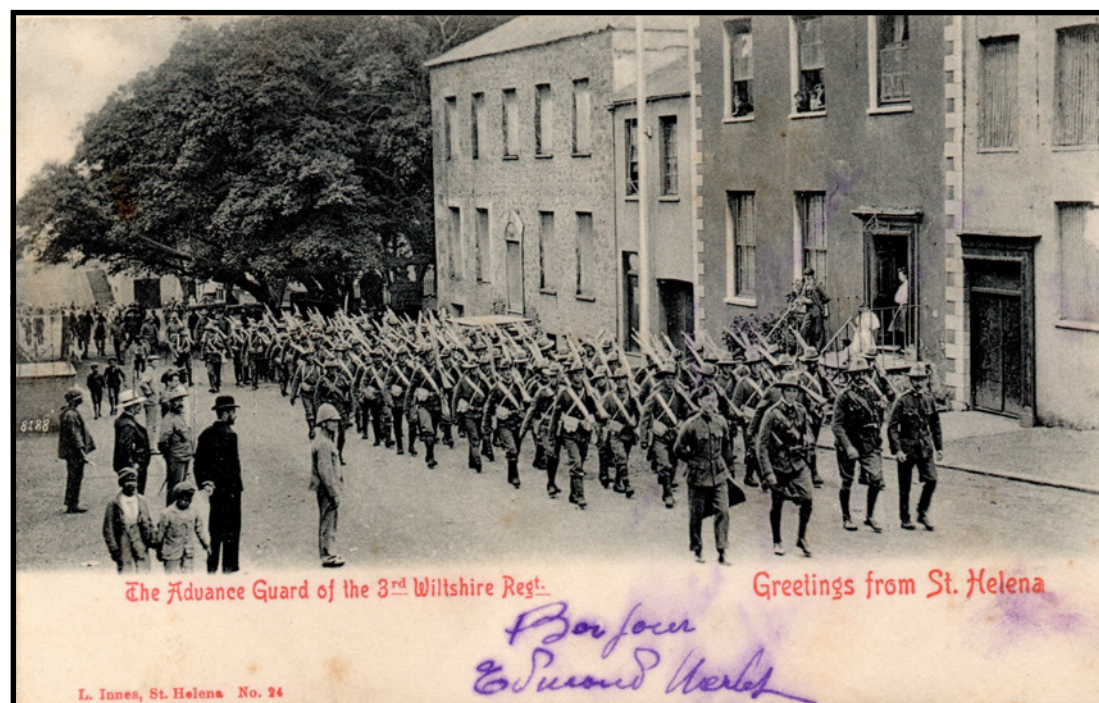 8188
The Advance Guard of the 3rd Wiltshire Regt.
Greetings from St. Helena
Bonjour
Edmond
L. Innes, St. Helena No. 24